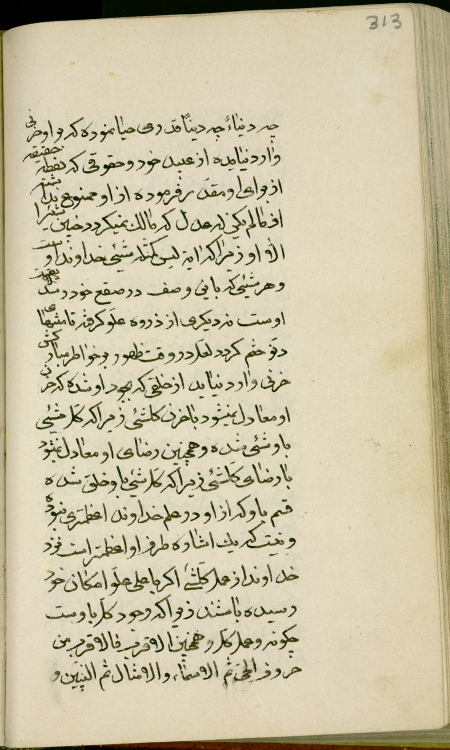 313
چه دنیاءً چه دینًا قدر می حیا نموده که بر او حزنی
وارد نیامده از عبید خود و حقوقی که نقطه حقیقت
از برای او مقدر فرموده از او ممنوع
از ظالم یکی له عدل که مالک نمیکردد چنین
الا او زیرا که اوست لیس کمثله شیئی خداوند او
و هر شیئی که بابی وصف در صقع خود رسد
اوست نه دیگری از ذروه علو گرفته تا منتهای
دنو ختم گردد لعل در وقت ظهور بر خواطر مبارکش
حزنی وارد نیاید از خلقی که بجود او شده که حزن
او معادل نمیشود با حزن کلشئی زیرا که کل شیئی
باو شئی شده و همچنین رضای او معادل نمیشود
با رضای کلشئی زیرا که کل شئی باو خلق شده
قسم باو که از او در علم خداوند اعظمتری نبوده
و نیست که یک اشاره طرف او اعظمتر است نزد
خداوند از عمل کلشئ اگر باعلی علو امکان خود
رسیده باشند زیرا که وجود کل باوست
چگونه و عمل کل و همچنین الاقرب فالاقرب من
حروف الحی ثم الاسماء والامثال ثم النبیین و